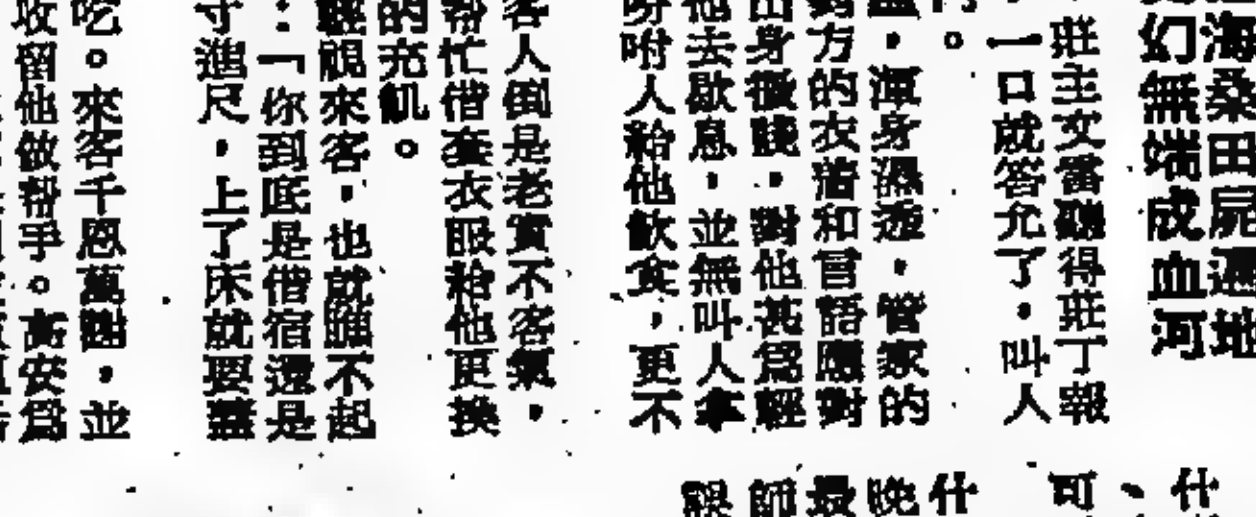 滄海桑田屍遍地
幻無端成血河
莊主文當聽得莊丁報
，一口就答允了，叫人
。
，渾身濕透，管家的
對方的衣著和言語應對
出身微賤，對他甚為輕
他去歇息，並無叫人拿
吩咐人給他飲食，更不
客人倒是老實不客氣，
幫忙借套衣服給他更換
的充飢。
輕視來客，也就瞧不起
：「你到底是借宿還是
寸進尺，上了床就要蓋
吃。來客千恩萬謝，並
收留他做幫手。高安為
什
、
可
什
晚
最
師